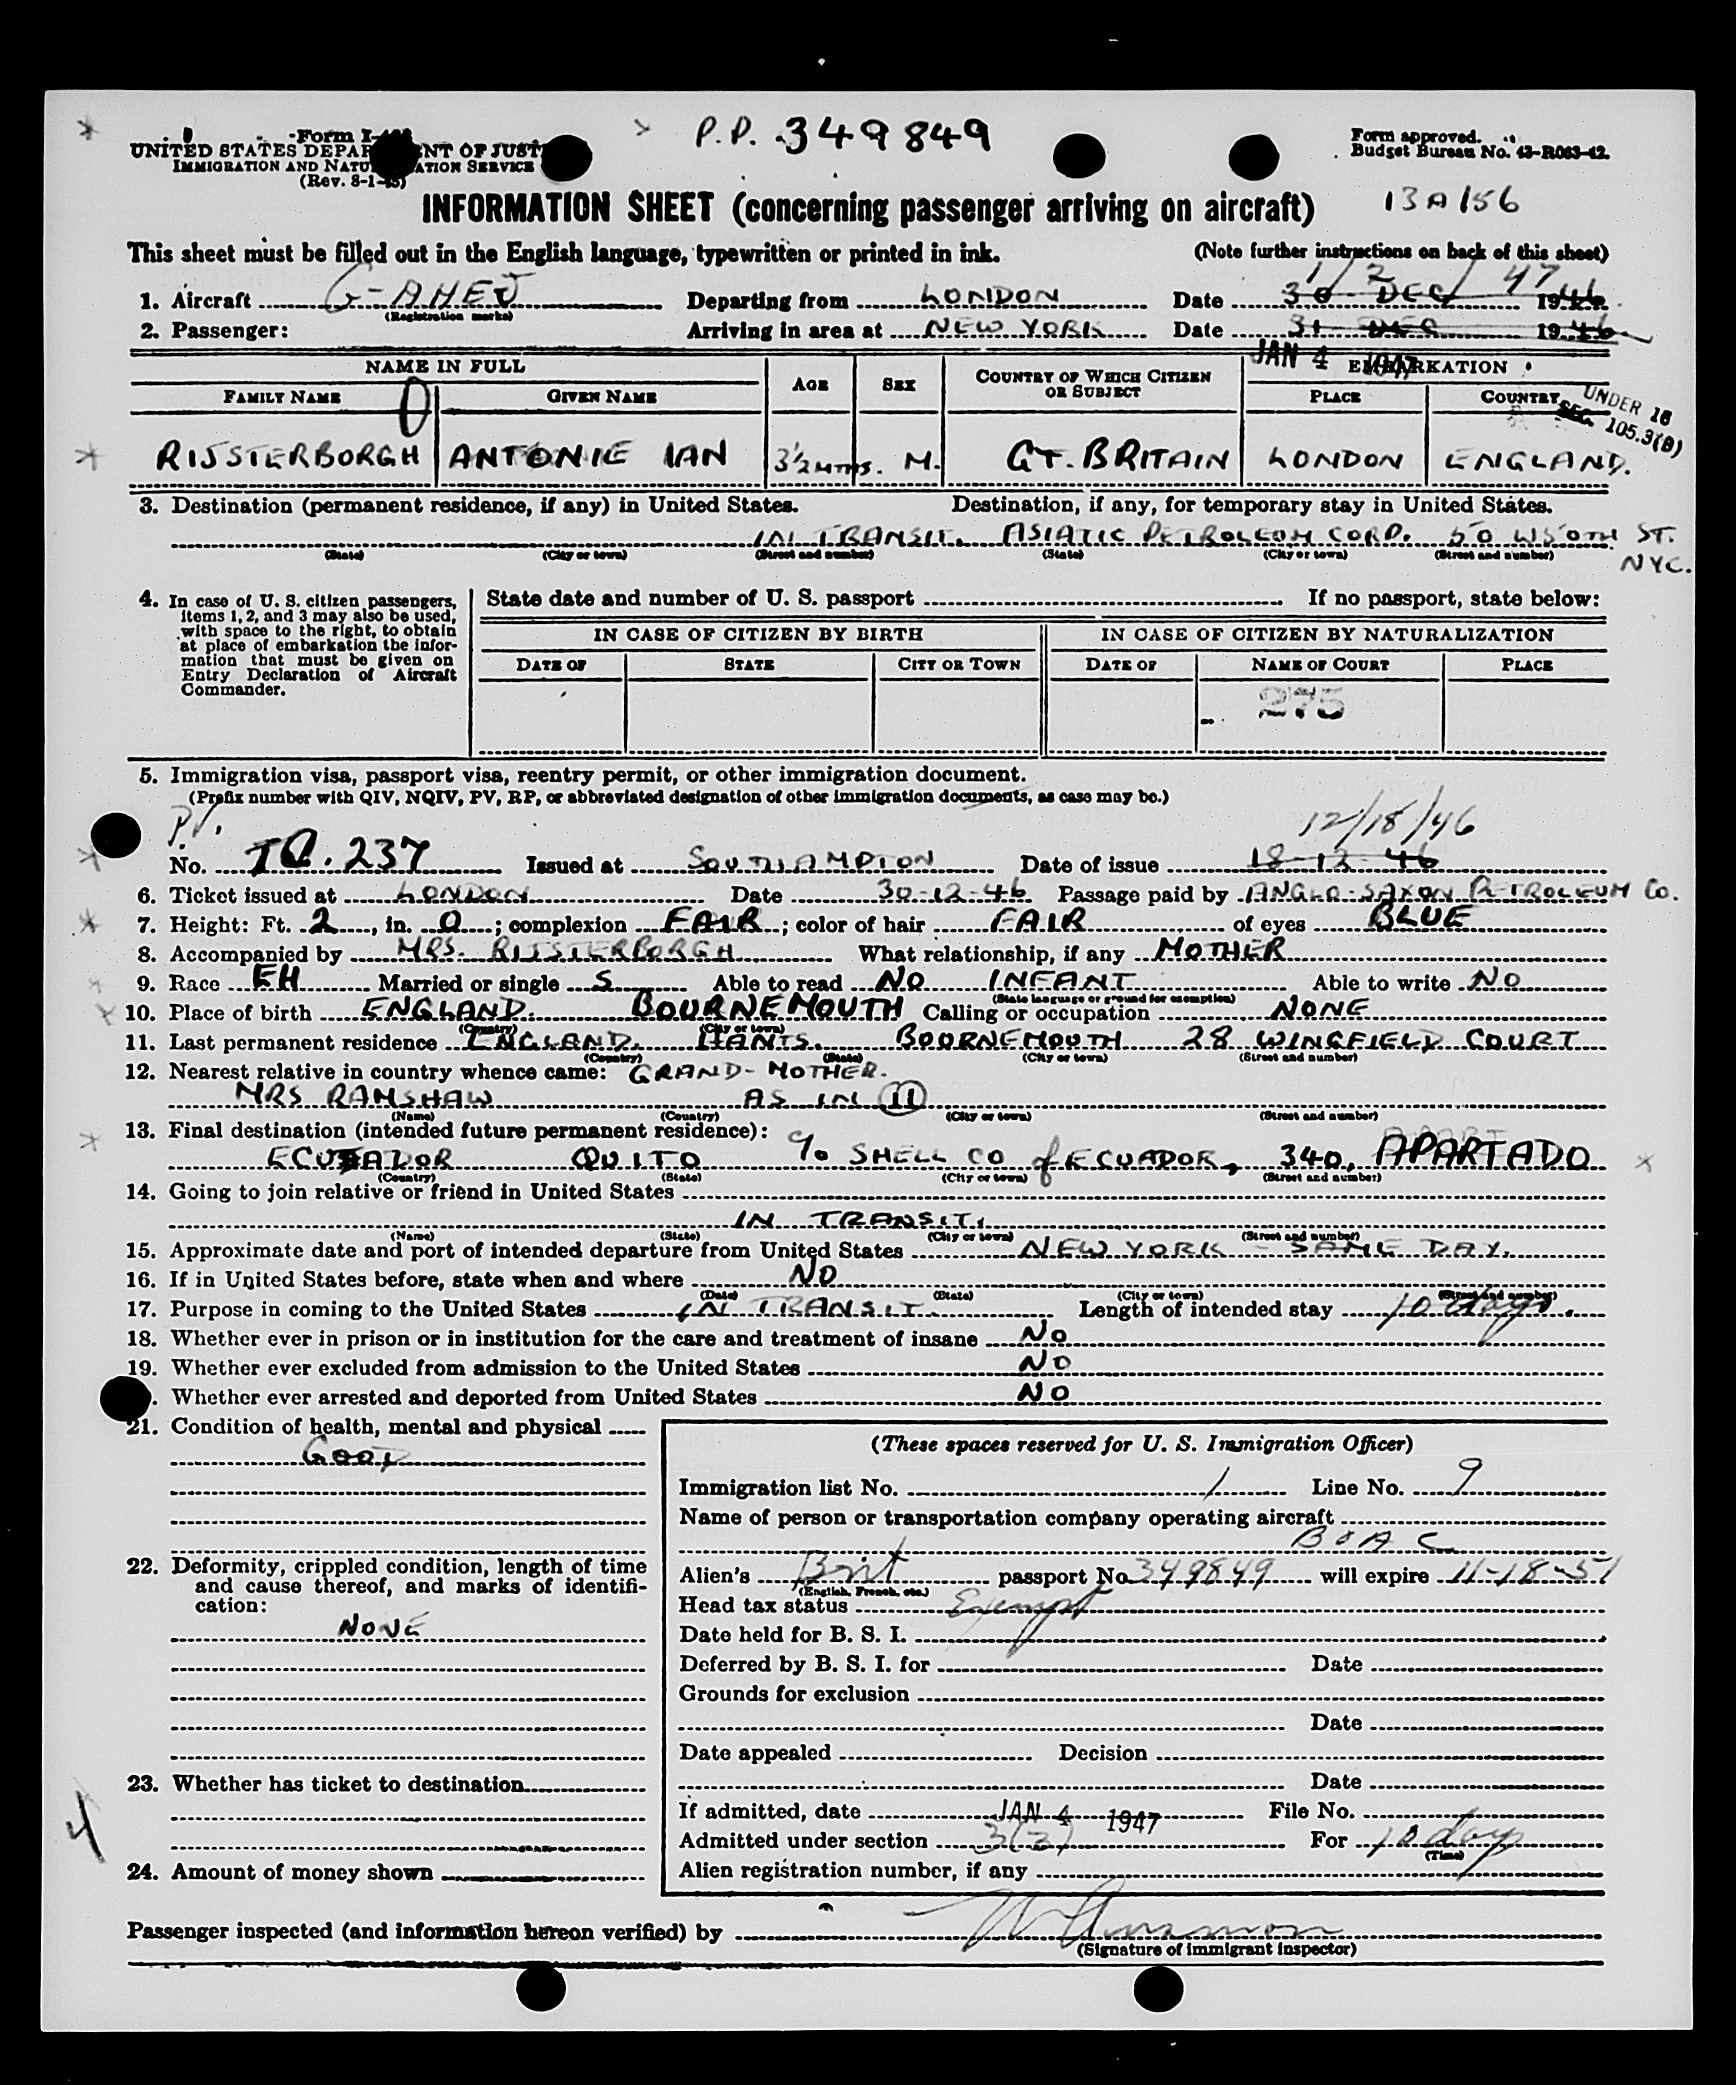 P.P. 349849
Form approved.
Budget Bureau No. 43-R063-42.
UNITED STATES DEPARTMENT OF JUSTICE
IMMIGRATION AND NATURALIZATION SERVICE
(Rev. 8-1-45)
INFORMATION SHEET (concerning passenger arriving on aircraft) 13A156
This sheet must be filled out in the English language, typewritten or printed in ink. (Note further instructions on back of this sheet)
1/2/47
1. Aircraft G-AHEJ Departing from LONDON Date 30 DEC 1946
(Registration marks)
2. Passenger: Arriving in area at NEW YORK Date 31 DEC 1946
JAN 4 1947
NAME IN FULL AGE SEX COUNTRY OF WHICH CITIZEN OR SUBJECT EMBARKATION
FAMILY NAME GIVEN NAME PLACE COUNTRY
UNDER 16
SEC. 105.3(B)
RIJSTERBORGH ANTONIE IAN 3½ MTHS. M. GT. BRITAIN LONDON ENGLAND.
3. Destination (permanent residence, if any) in United States. Destination, if any, for temporary stay in United States.
IN TRANSIT. ASIATIC PETROLEUM CORP. 50 W50TH ST.
NYC.
(State) (City or town) (Street and number) (State) (City or town) (Street and number)
4. In case of U. S. citizen passengers, items 1, 2, and 3 may also be used, with space to the right, to obtain at place of embarkation the information that must be given on Entry Declaration of Aircraft Commander.
State date and number of U. S. passport If no passport, state below:
IN CASE OF CITIZEN BY BIRTH IN CASE OF CITIZEN BY NATURALIZATION
DATE OF STATE CITY OR TOWN DATE OF NAME OF COURT PLACE
275
5. Immigration visa, passport visa, reentry permit, or other immigration document.
(Prefix number with QIV, NQIV, PV, RP, or abbreviated designation of other immigration documents, as case may be.)
P.V. 12/18/46
No. TQ. 237 Issued at SOUTHAMPTON Date of issue 18-12-46
6. Ticket issued at LONDON Date 30-12-46 Passage paid by ANGLO-SAXON PETROLEUM CO.
7. Height: Ft. 2, in. 0; complexion FAIR; color of hair FAIR of eyes BLUE
8. Accompanied by MRS. RIJSTERBORGH What relationship, if any MOTHER
9. Race EH Married or single S Able to read NO INFANT Able to write NO
(State language or ground for exemption)
10. Place of birth ENGLAND. BOURNEMOUTH Calling or occupation NONE
(Country) (City or town)
11. Last permanent residence ENGLAND. HANTS. BOURNEMOUTH 28 WINGFIELD COURT
(Country) (State) (City or town) (Street and number)
12. Nearest relative in country whence came: GRAND-MOTHER.
MRS RAMSHAW AS IN 11
(Name) (Country) (City or town) (Street and number)
13. Final destination (intended future permanent residence):
ECUADOR QUITO c/o SHELL CO of ECUADOR, 340, APARTADO
(Country) (State) (City or town) (Street and number)
14. Going to join relative or friend in United States
IN TRANSIT.
(Name) (State) (City or town) (Street and number)
15. Approximate date and port of intended departure from United States NEW YORK - SAME DAY.
16. If in United States before, state when and where NO
(Date) (State) (City or town) (Street and number)
17. Purpose in coming to the United States IN TRANSIT. Length of intended stay 10 days.
18. Whether ever in prison or in institution for the care and treatment of insane NO
19. Whether ever excluded from admission to the United States NO
. Whether ever arrested and deported from United States NO
21. Condition of health, mental and physical
GOOD
22. Deformity, crippled condition, length of time and cause thereof, and marks of identification:
NONE
23. Whether has ticket to destination
4
24. Amount of money shown
(These spaces reserved for U. S. Immigration Officer)
Immigration list No. 1 Line No. 9
Name of person or transportation company operating aircraft
BOAC
Alien's Brit passport No. 349849 will expire 11-18-51
(English, French, etc.)
Head tax status Exempt
Date held for B. S. I.
Deferred by B. S. I. for Date
Grounds for exclusion
Date
Date appealed Decision
Date
If admitted, date JAN 4 1947 File No.
Admitted under section 3(3) For 10 days
(Time)
Alien registration number, if any
Passenger inspected (and information hereon verified) by
(Signature of immigrant inspector)